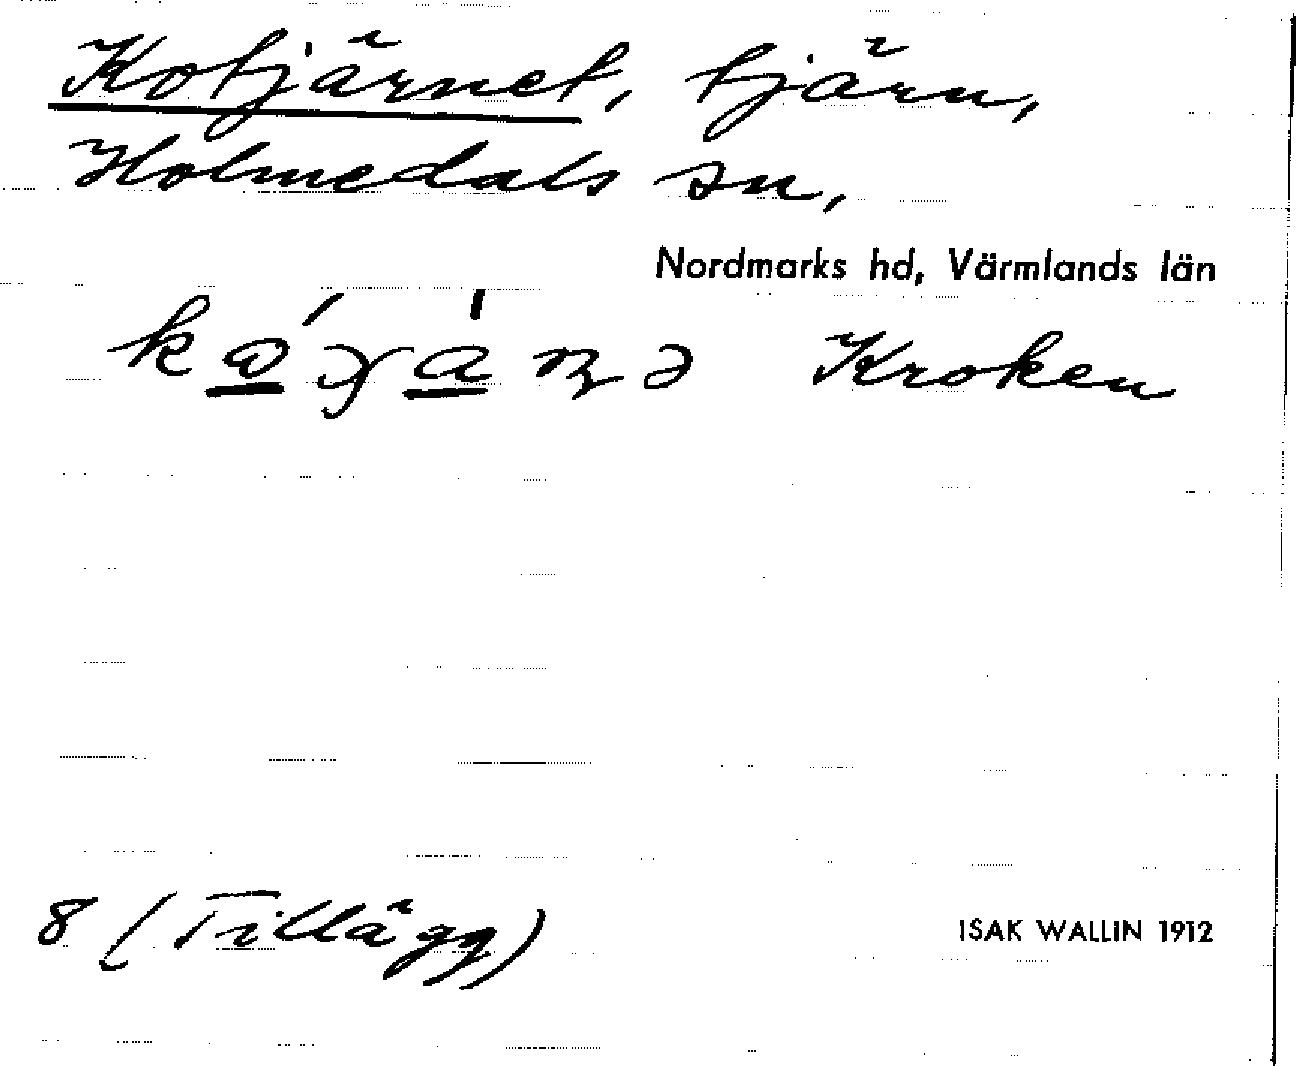 Kotjärnet, tjärn,
Holmedals sn,
Nordmarks hd, Värmlands län
Kroken
8 (Tillägg)
ISAK WALLIN 1912